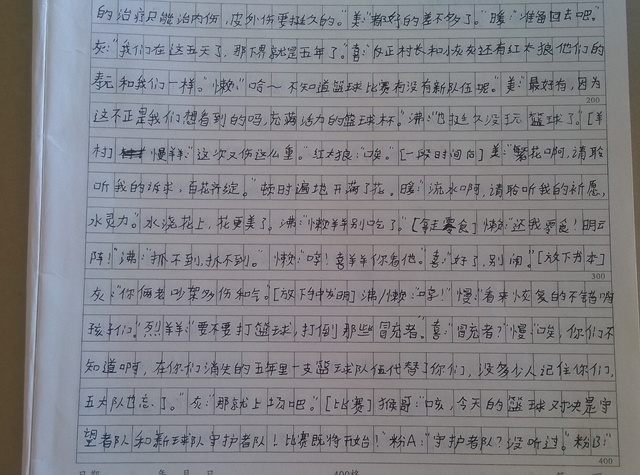 的治疗只能治内伤，皮外伤要挺久的。"美："都好的差不多了。"暖："准备回去吧。"
灰："我们在这五天了，那下界就是五年了。"喜："反正村长和小灰灰还有红太狼他们的
寿元和我们一样。"懒："哈~不知道篮球比赛有没有新队伍呢。"美："最好有，因为
200
这不正是我们想看到的吗，充满活力的篮球杯。"沸："也挺久没玩篮球了。"[羊
村] 慢羊："这次又伤这么重。"红太狼："唉。"[一段时间间]美："繁花啊，请聆
听我的诉求，百花齐绽。"顿时遍地开满了花。暖："流水啊，请聆听我的祈愿，
水灵力。"水浇花上，花更美了。沸："懒羊羊别吃了。"[拿走零食]懒："还我零食！明云
阵！"沸："抓不到，抓不到。"懒："哼！喜羊羊你看他。"喜："好了，别闹。"[放下书本]
300
灰："你俩老吵架多伤和气。[放下中发明]沸/懒："哼！"慢："看来恢复的不错啊
孩子们。"烈羊羊："要不要打篮球，打倒那些冒充者。"喜："冒充者？"慢："唉，你们不
知道啊，在你们消失的五年里一支篮球队伍代替了你们，没多少人记住你们，
五大队也忘了。"灰："那就上场吧。"[比赛]猴哥："咳，今天的篮球对决是守
望者队和新王球队守护者队！比赛既将开始！"粉A："守护者队？没听过。"粉B："
400